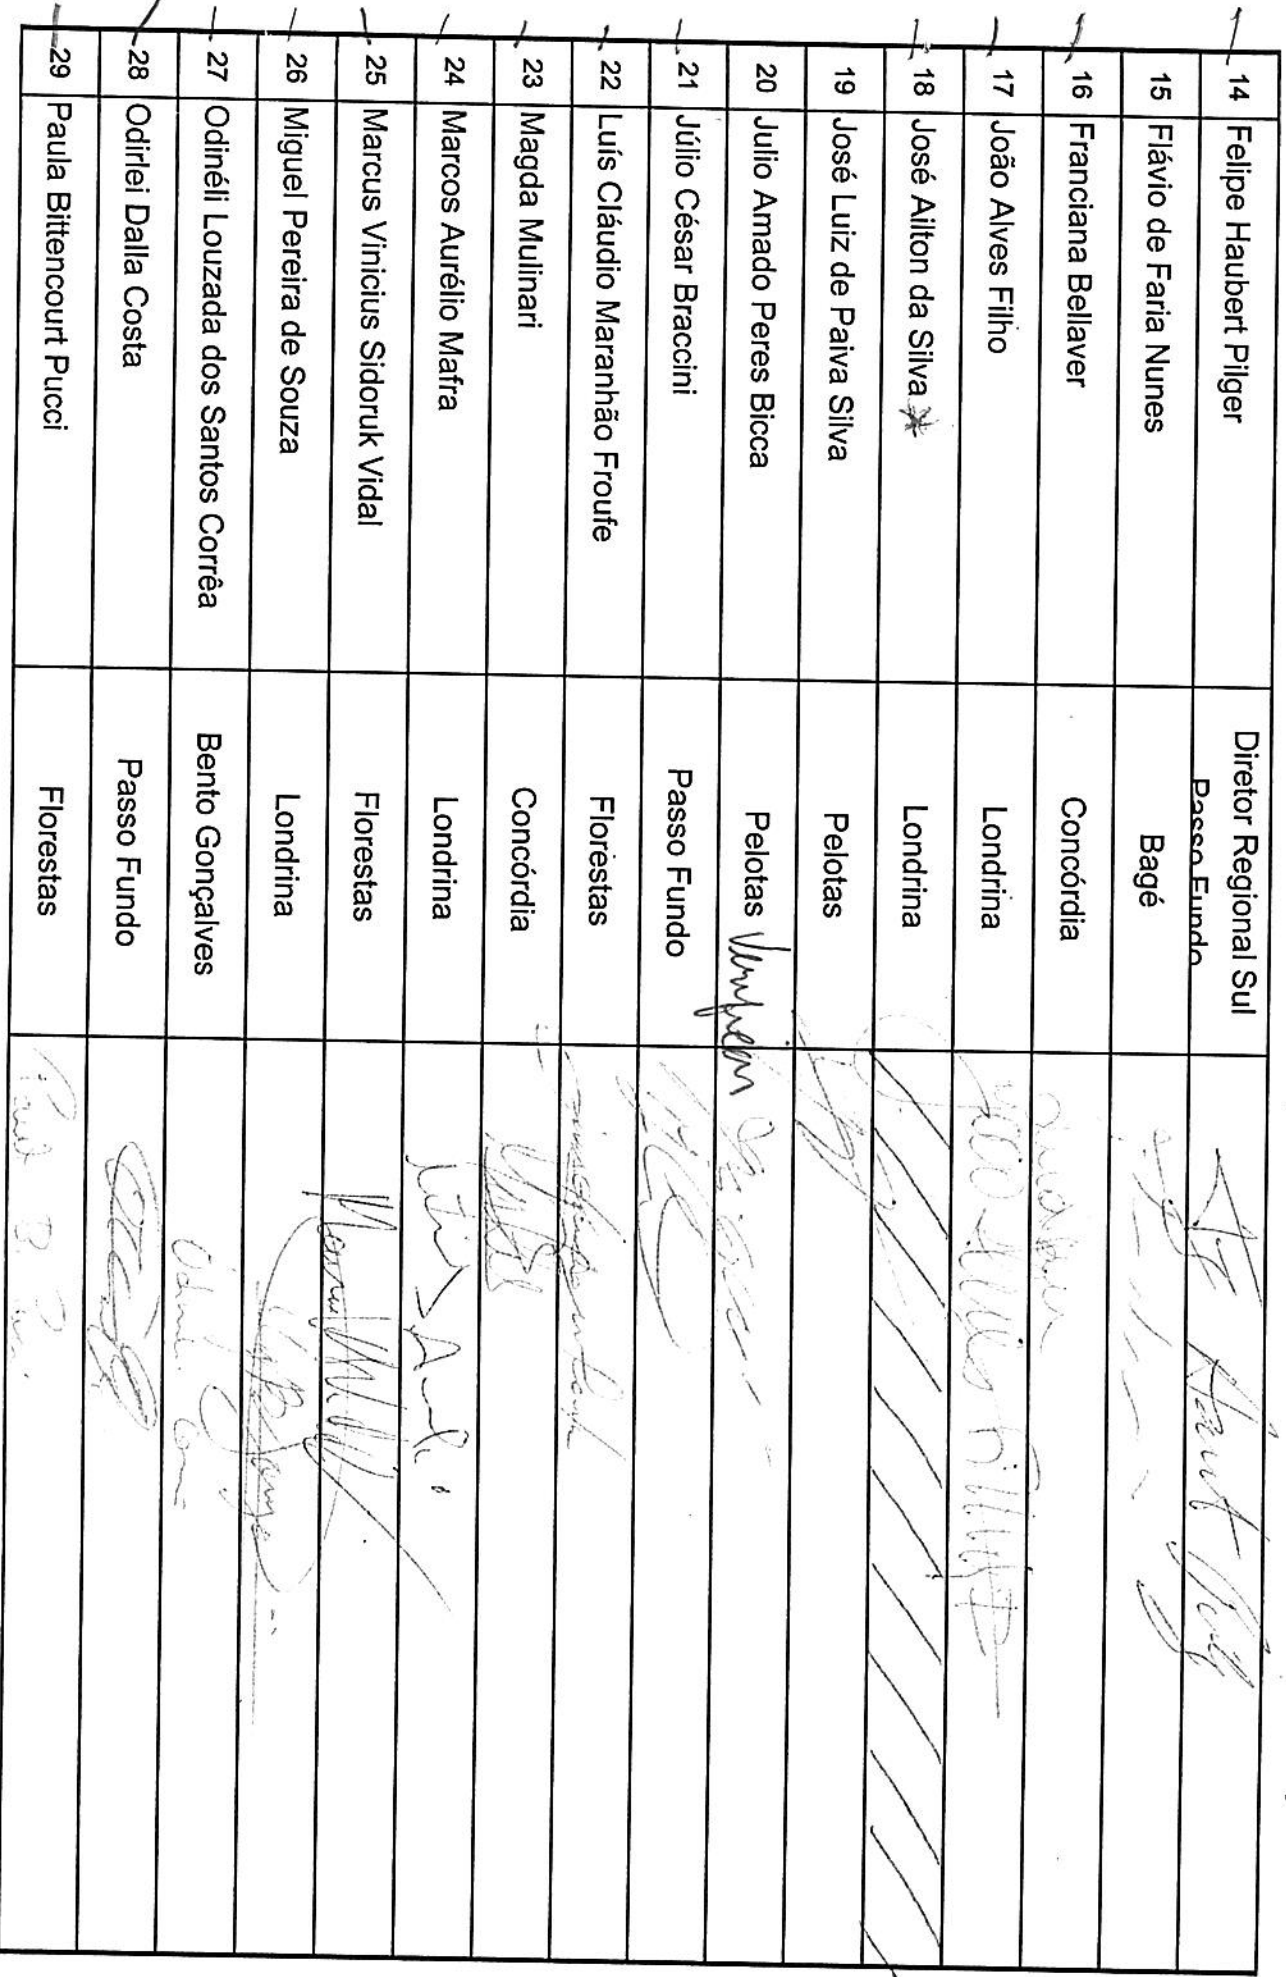 14 Felipe Haubert Pilger Diretor Regional Sul
Passo Fundo
15 Flávio de Faria Nunes Bagé
16 Franciana Bellaver Concórdia
17 João Alves Filho Londrina João Alves Filho
18 José Ailton da Silva * Londrina
19 José Luiz de Paiva Silva Pelotas
20 Julio Amado Peres Bicca Pelotas
21 Júlio César Braccini Passo Fundo
22 Luís Cláudio Maranhão Froufe Florestas
23 Magda Mulinari Concórdia
24 Marcos Aurélio Mafra Londrina
25 Marcus Vinicius Sidoruk Vidal Florestas
26 Miguel Pereira de Souza Londrina
27 Odinéli Louzada dos Santos Corrêa Bento Gonçalves
28 Odirlei Dalla Costa Passo Fundo
29 Paula Bittencourt Pucci Florestas